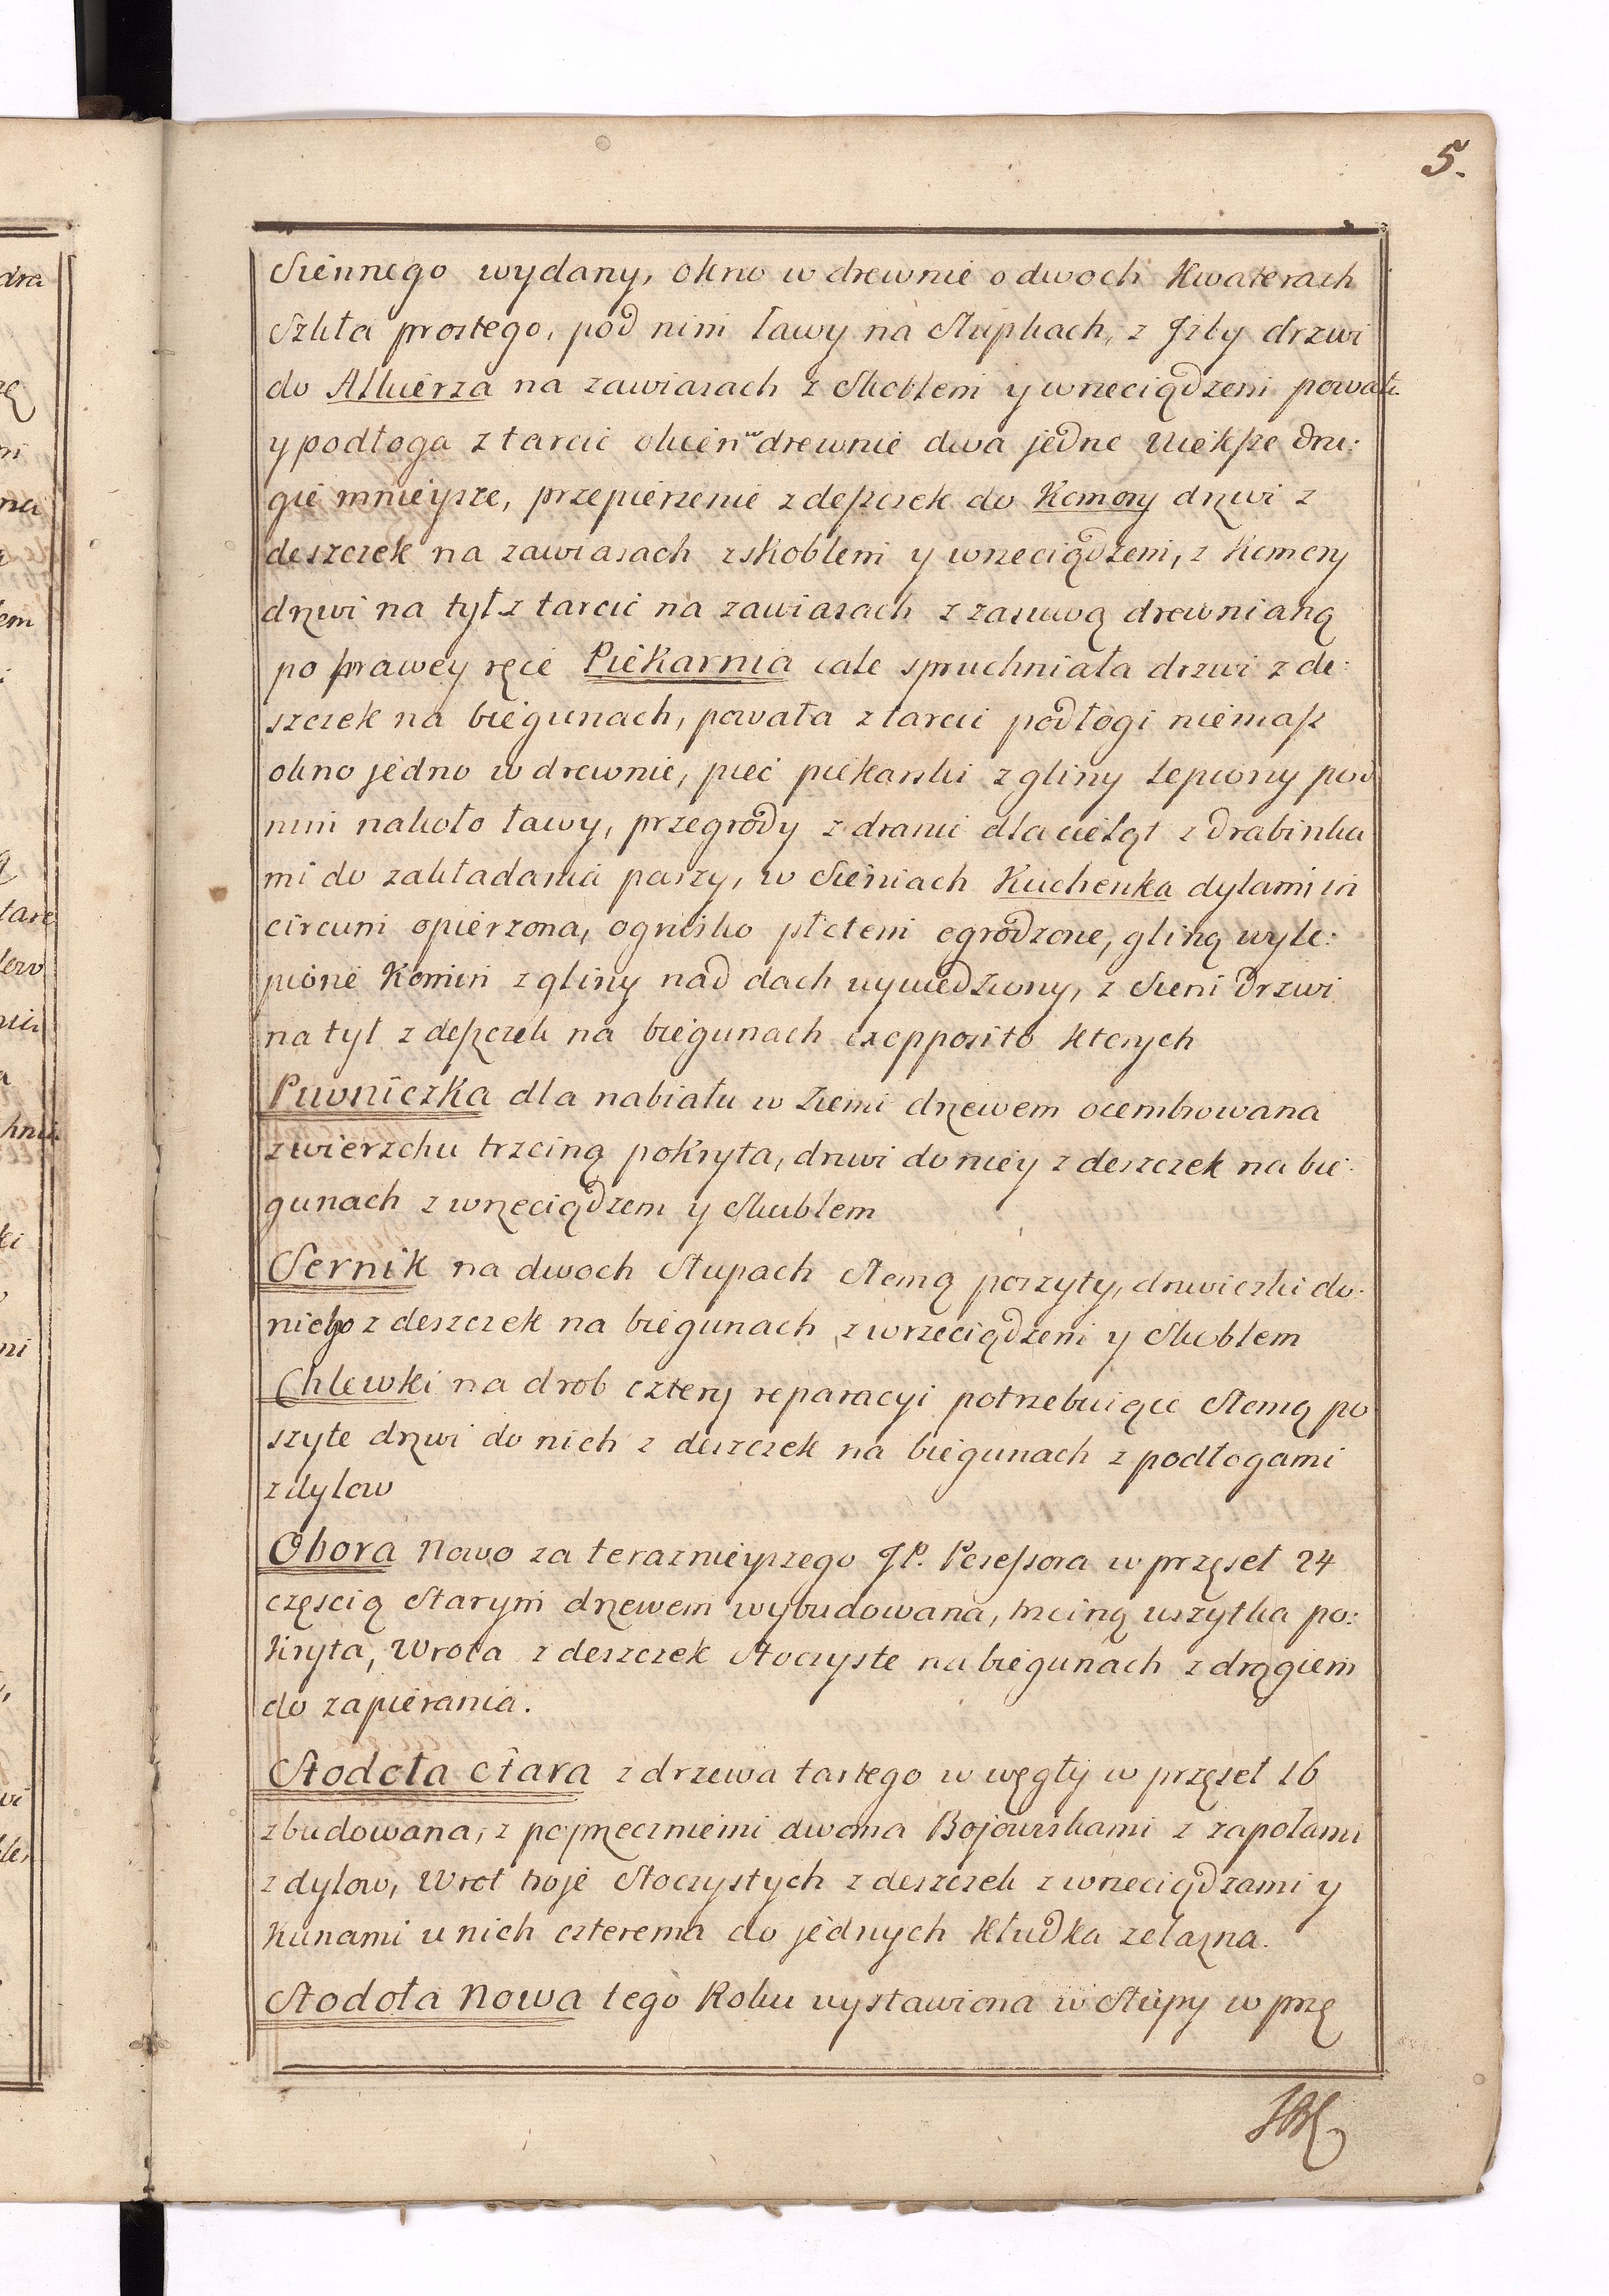 5.
Siennego wydany, okno w drewnie o dwoch Kwaterach
Szkła prostego, pod nim ławy na Słupkach, z Jzby drzwi
do Alkierza na zawiasach z Skoblem y wrzeciądzem powała
y podłoga z tarcic okien w drewnie dwa jedne Większe dru:
gie mnieysze, przepierzenie z deszczek do Komory drzwi z
deszczek na zawiasach z skoblem y wrzeciądzem, z Komory
drzwi na tył z tarcic na zawiasach z zasuwą drewnianą
po prawey ręce Piekarnia cale spruchniała drzwi z de:
szczek na biegunach, powała z tarcic podłogi niemasz
okno jedno w drewnie, piec piekarski z gliny lepiony pod
nim nakoło ławy, przegrody z dranic dla cieląt z drabinka
mi do zakładania paszy, w Sieniach Kuchenka dylami in
circum opierzona, ognisko płotem ogrodzone, gliną wyle:
pione Komin z gliny nad dach wywiedziony, z Sieni drzwi
na tył z deszczek na biegunach exopposito ktorych
Piwniczka dla nabiału w Ziemi drzewem ocembrowana
z wierzchu trzciną pokryta, drzwi do niey z deszczek na bie:
gunach z wrzeciądzem y Skoblem
Sernik na dwoch Słupach Słomą poszyty, drzwiczki do
niego z deszczek na biegunach z wrzeciądzem y Skoblem
Chlewki na drob cztery reparacyi potrzebuiące Słomą po
szyte drzwi do nich z deszczek na biegunach z podłogami
z dylow
Obora Nowo za teraznieyszego JP. Possessora w przęseł 24
częscią Starym drzewem wybudowana, trzciną wszytka po:
kryta, Wrota z deszczek Stoczyste na biegunach z drągiem
do zapierania.
Stodoła Stara z drzewa tartego w węgły w przęseł 16
zbudowana, z poprzeczniemi dwoma Bojowiskami z zapołami
z dylow, Wrot troje Stoczystych z deszczek z wrzeciądzami y
Kunami u nich czterema do jednych Kłudka zelazna.
Stodoła Nowa tego Roku wystawiona w Słupy w prze